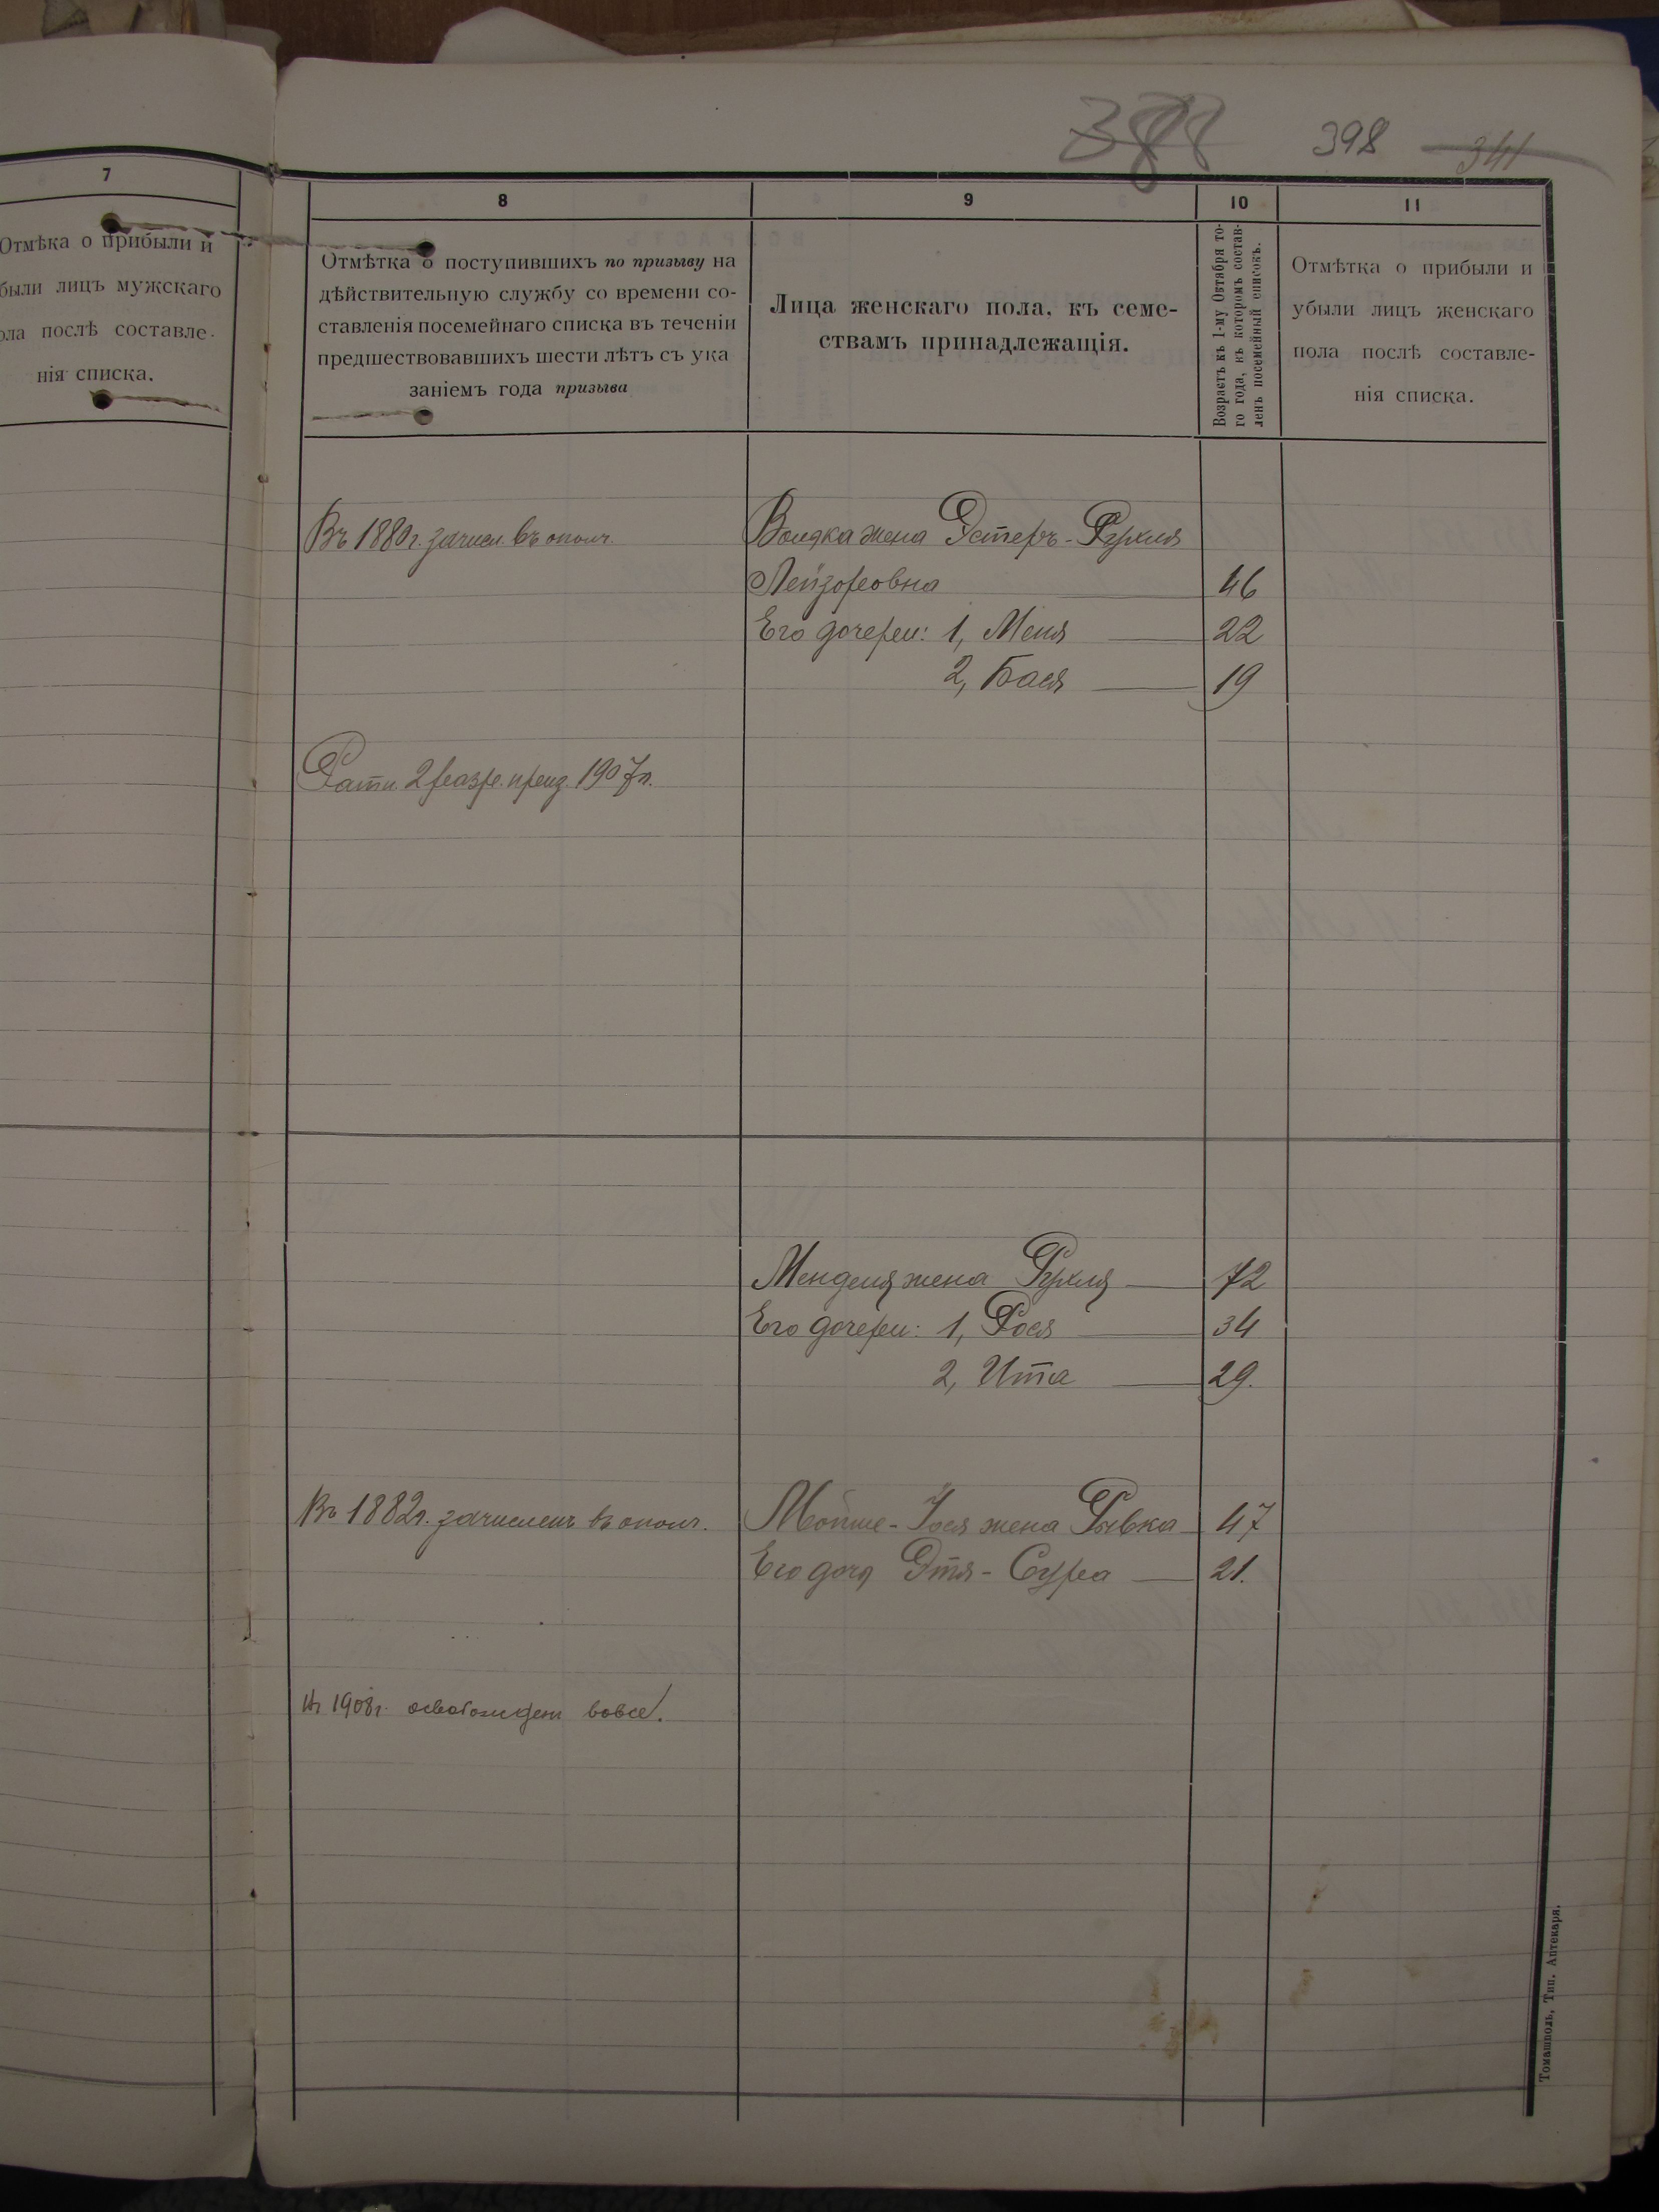 388 398 341
7
Отмѣтка о прибыли и
были лицъ мужскаго
ола послѣ составле-
нія списка.
8
Отмѣтка о поступившихъ по призыву на
дѣйствительную службу со времени со-
ставленія посемейнаго списка въ теченіи
предшествовавшихъ шести лѣтъ съ ука
заніемъ года призыва
9
Лица женскаго пола, къ семе-
ствамъ принадлежащія.
10
Возрастъ къ 1-му Октября то-
го года, въ которомъ состав-
ленъ посемейный списокъ.
11
Отмѣтка о прибыли и
убыли лицъ женскаго
пола послѣ составле-
нія списка.
Въ 1880 г. зачисл. въ ополч. Волька жена Эстеръ-Рухля
Лейзоровна 46
Его дочери: 1, Меня 22
2, Бася 19
Ратн. 2 разр. приз. 1907 г.
Менделя жена Рухля 72
Его дочери: 1, Рося 34
2, Ита 29.
Въ 1882 г. зачисленъ въ ополч. Мойше-Іося жена Рывка 47
Его дочь Этя-Сура 21.
1908 г. освобожден вовсе.
Томашполь, Тип. Аптекаря.